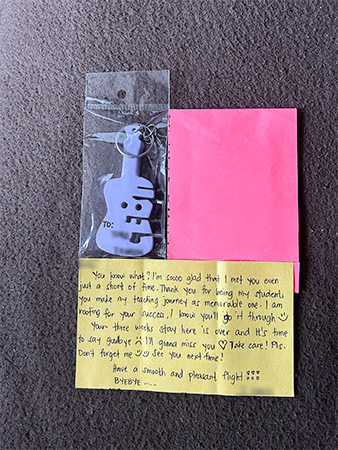 To:
CEBU
You know what? I'm soooo glad that I met you even
just a short of time. Thank you for being my student,
you make my teaching journey as memorable one. I am
rooting for your success, I know you'll go 'H through
Your three weeks stay here is over and It's time
to say goodbye I'll gonna miss you Take care! Pls.
Don't forget me See you next time!
Have a smooth and pleasant flight !!!
BYEBYE....